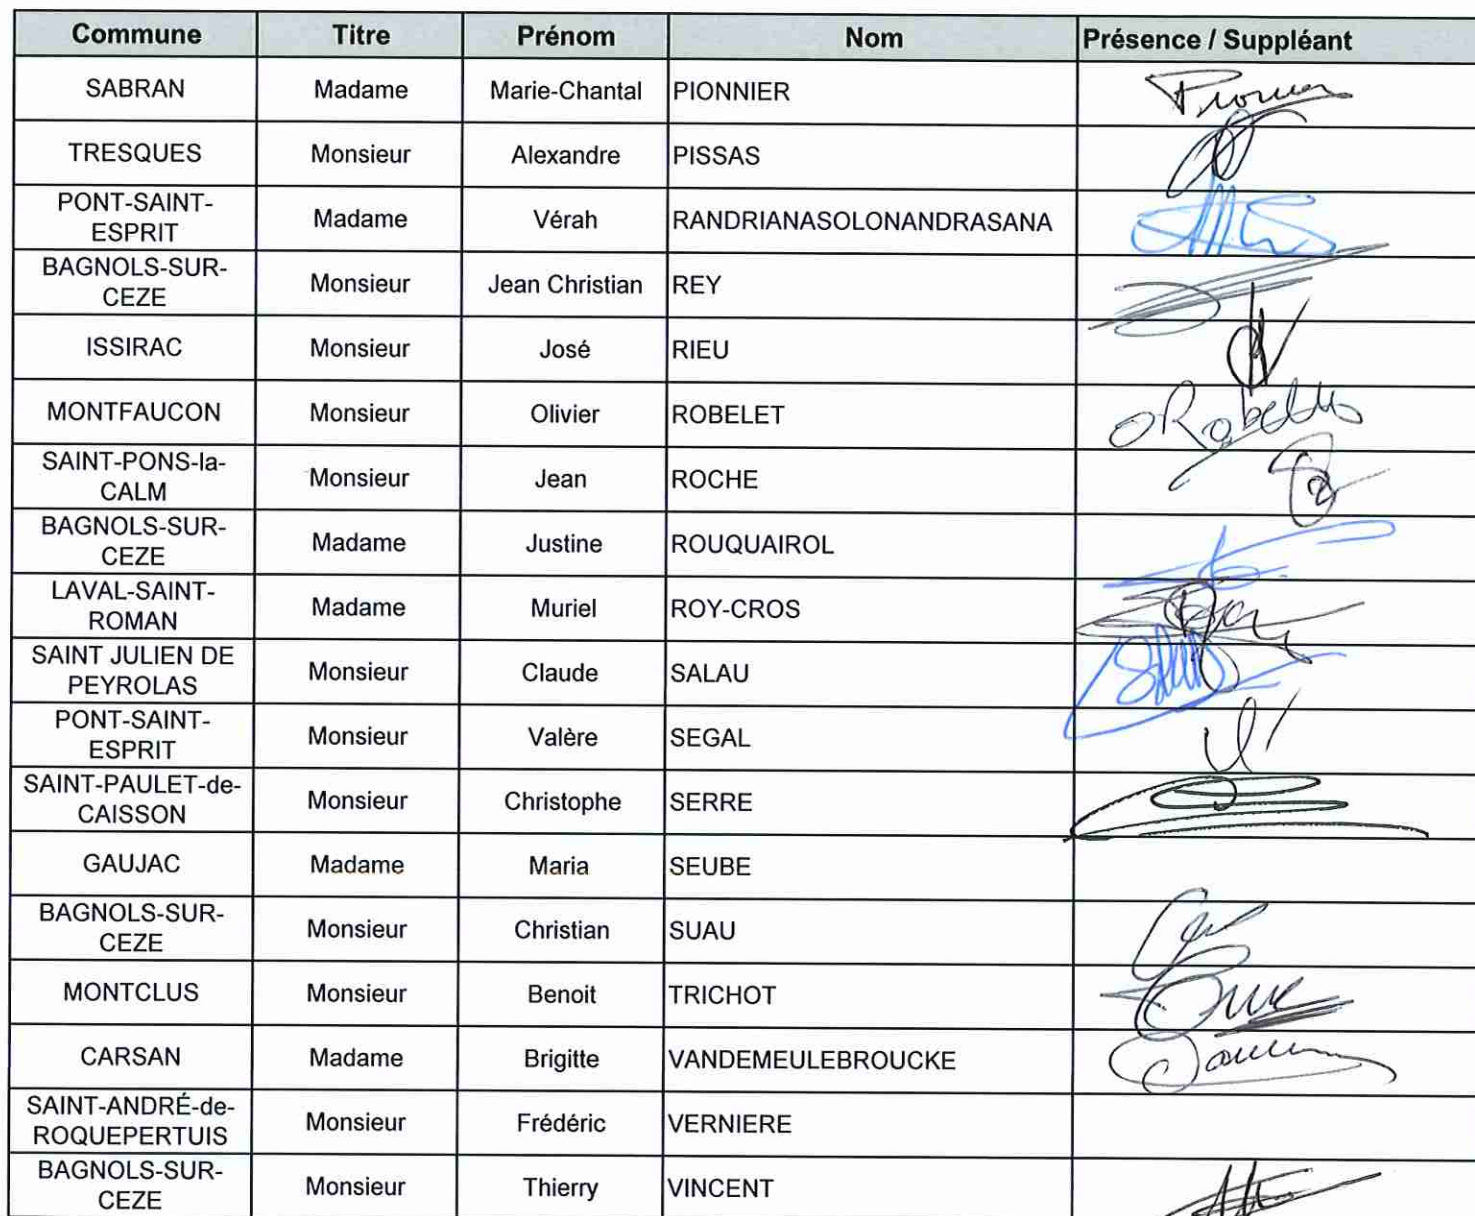 Commune Titre Prénom Nom Présence / Suppléant
SABRAN Madame Marie-Chantal PIONNIER
TRESQUES Monsieur Alexandre PISSAS
PONT-SAINT-
ESPRIT Madame Vérah RANDRIANASOLONANDRASANA
BAGNOLS-SUR-
CEZE Monsieur Jean Christian REY
ISSIRAC Monsieur José RIEU
MONTFAUCON Monsieur Olivier ROBELET
SAINT-PONS-la-
CALM Monsieur Jean ROCHE
BAGNOLS-SUR-
CEZE Madame Justine ROUQUAIROL
LAVAL-SAINT-
ROMAN Madame Muriel ROY-CROS
SAINT JULIEN DE
PEYROLAS Monsieur Claude SALAU
PONT-SAINT-
ESPRIT Monsieur Valère SEGAL
SAINT-PAULET-de-
CAISSON Monsieur Christophe SERRE
GAUJAC Madame Maria SEUBE
BAGNOLS-SUR-
CEZE Monsieur Christian SUAU
MONTCLUS Monsieur Benoit TRICHOT
CARSAN Madame Brigitte VANDEMEULEBROUCKE
SAINT-ANDRÉ-de-
ROQUEPERTUIS Monsieur Frédéric VERNIERE
BAGNOLS-SUR-
CEZE Monsieur Thierry VINCENT